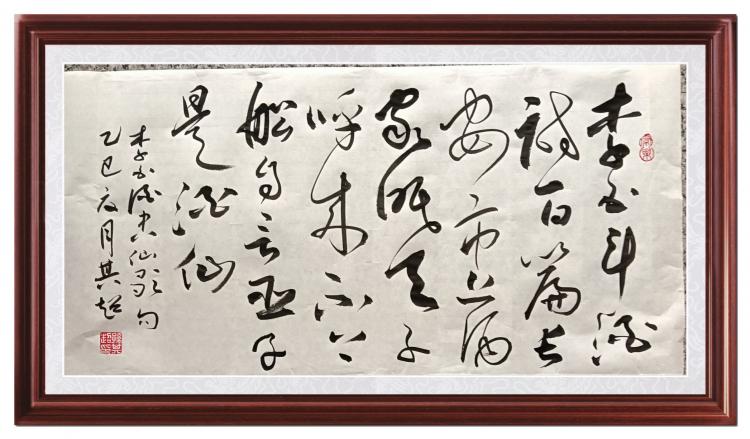 李白斗酒
诗百篇长
安市上酒
家眠天子
呼来不上
船自言臣子
是酒仙
李白酒中仙歌句
乙巳夏月其超